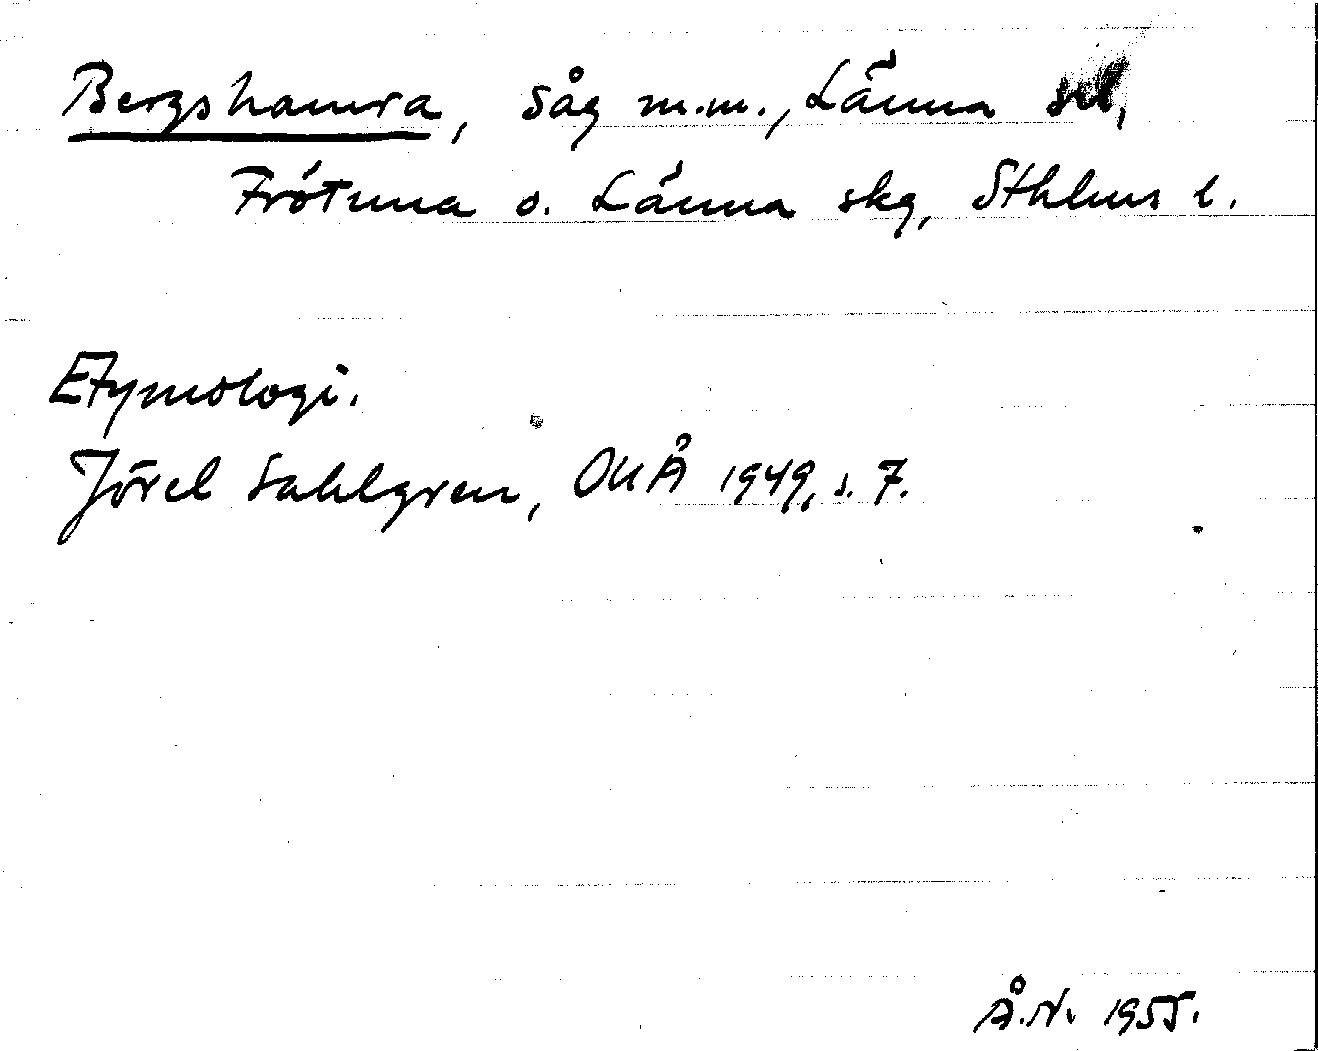 Bergshamra, såg m.m., Länna sn,
Frötuna o. Länna skg, Sthlms l.
Etymologi.
Jöran Sahlgren, OUÅ 1949, s. 7.
Å.N. 1955.